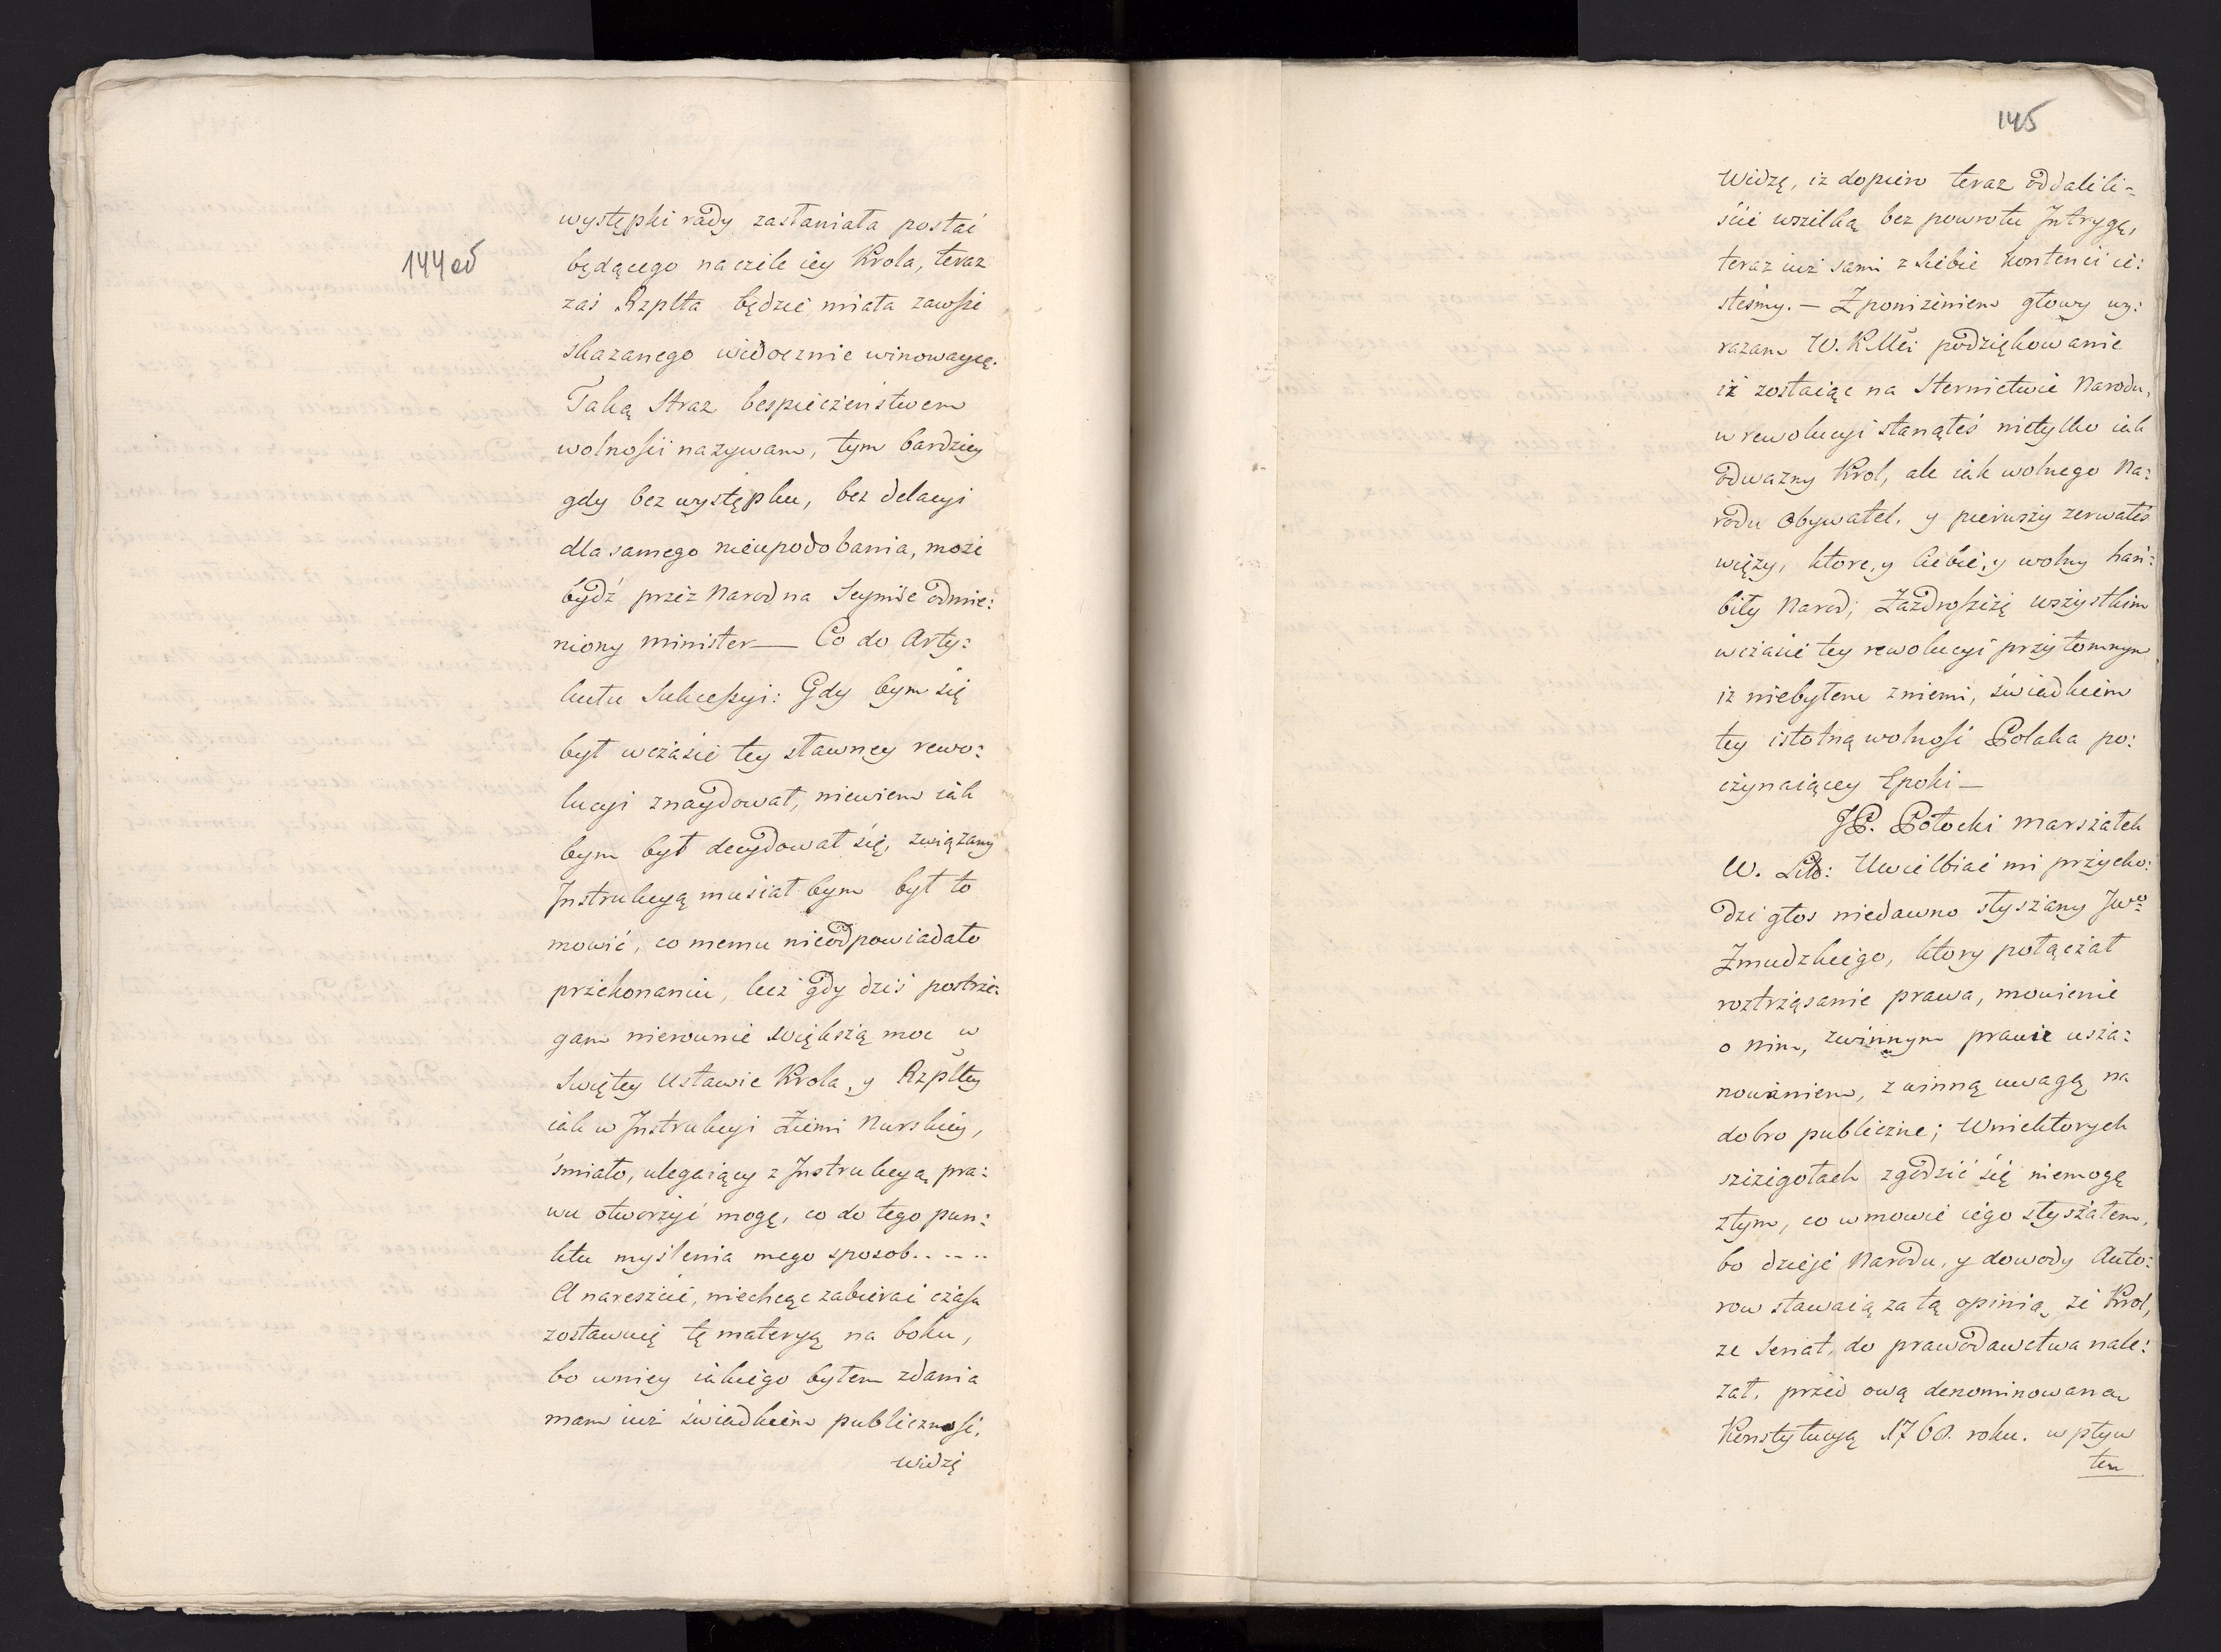 144 об
występki rady zasłaniała postać
będącego na czele iey Krola, teraz
zaś Rzplta będzie miała zawsze
skazanego widocznie winowaycę.
Taką Straz bespieczeństwem
wolności nazywam, tym bardziey
gdy bez występku, bez delacyi
dla samego nieupodobania, może
bydź przez Narod na Seymie odmie:
niony minister — Co do Arty:
kułu Sukcessyi: Gdy bym się
był wczasie tey sławney rewo:
lucyi znaydował, niewiem iak
bym był decydował się, związany
Instrukcyą musiał bym był to
mowić, co memu nieodpowiadało
przekonaniu, lecz gdy dziś postrze:
gam nierownie większą moc w
Swiętey Ustawie Krola, y Rzpltey
iak w Instrukcyi Ziemi Nurskiey,
śmiało, ulegaiący z Instrukcyą pra:
wu otworzyć mogę, co do tego pun:
ktu myślenia mego sposob.....
A nareszcie, niechcąc zabierać czasu
zostawuię tę materyą na boku,
bo wniey iakiego byłem zdania
mam iuż świadkiem publiczność.
widzę
145
Widzę, iz dopiero teraz oddalili-
ście wszelką bez powrotu Intrygę,
teraz iuż sami z siebie kontenci ie:
steśmy. — Z poniżeniem głowy wy:
razam W. K Mci podziękowanie
iż zostaiąc na Sternictwie Narodu,
w rewolucyi stanąłeś nietylko iak
odwazny Krol, ale iak wolnego Na:
rodu Obywatel. y pierwszy zerwałeś
więzy, ktore, y Ciebie, y wolny hań:
biły Narod; Zazdroszczę wszystkim
wczasie tey rewolucyi przytomnym
iz niebyłem zniemi, świadkiem
tey istotną wolność Polaka po:
czynaiącey Epoki —
JP. Potocki Marszałek
W. Litt: Uwielbiać mi przycho:
dzi głos niedawno słyszany Jwo
Zmudzkiego, ktory połączał
roztrząsanie prawa, mowienie
o nim, zwinnym prawie usza:
nowaniem, z winną uwagą na
dobro publiczne; Wniektorych
szczegołach zgodzić się niemogę
ztym, co wmowie iego słyszałem,
bo dzieje Narodu, y dowody Auto:
row stawaią za tą opinią, że Krol,
ze Senat, do prawodawctwa nale:
zał, przed ową denominowaną
Konstytucyą 1768. roku. wpływ
ten